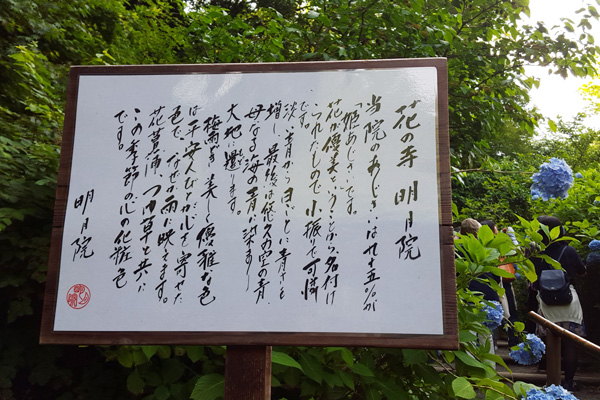 花の寺 明月院
当院のあじさいは九十五%が
「姫あじさい」です。
花が優美ということから名付け
られたもので、小振りで可憐
です。
淡い青から日ごとに青さを
増し、最後は悠久の空の青、
母なる海の青に染まり
大地に還ります。
梅雨空に美しく優雅な色
は平安人びとが心を寄せた
色で、なぜか雨に映えます。
花菖蒲、つゆ草と共に
この季節の心の化粧色
です。
明月院